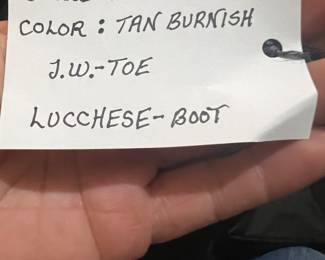 COLOR : TAN BURNISH
J.W.-TOE
LUCCHESE-BOOT